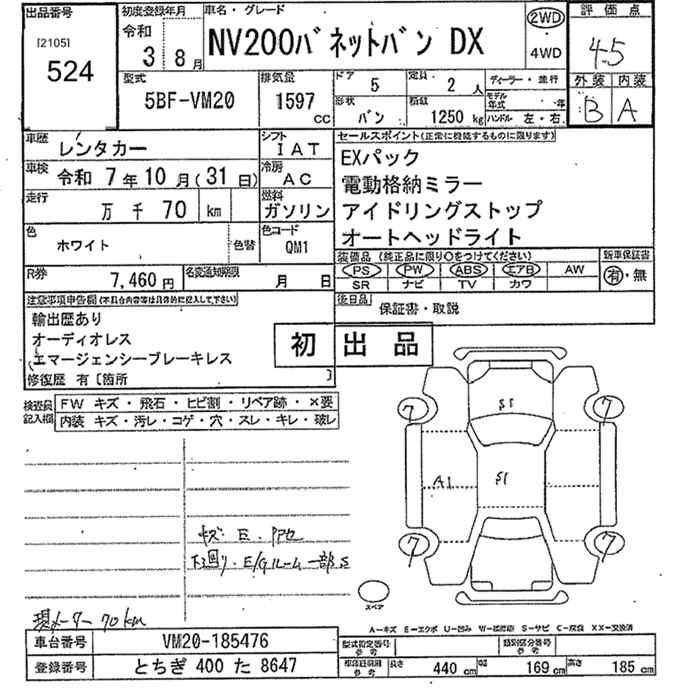 出品番号 初度登録年月 車名・グレード 2WD 評価点
[2105] 令和 4WD 4.5
524 3年 8月 NV200バネットバン DX
型式 排気量 ドア 5 定員 2人 ディーラー・並行 外装 内装
5BF-VM20 1597cc 形状 バン 積載 1250kg モデル年式 年 B A
ハンドル 左・右
車歴 レンタカー シフト IAT セールスポイント(正常に機能するものに限ります)
車検 令和 7年10月(31日) 冷房 AC EXパック
走行 万千70 km 燃料 ガソリン 電動格納ミラー
アイドリングストップ
色 ホワイト 色替 色コード QM1 オートヘッドライト
装備品(純正品に限り○をつけてください) 新車保証書
R券 7,460円 名変通知期限 月 日 PS PW ABS エアB AW 有・無
SR ナビ TV カワ
注意事項申告欄(不具合内容等は具体的に記入して下さい) 後日品 保証書・取説
輸出歴あり
オーディオレス 初出品
エマージェンシーブレーキレス
修復歴 有〔箇所 〕
検査員記入欄 FW キズ・飛石・ヒビ割・リペア跡・×要
内装 キズ・汚レ・コゲ・穴・スレ・キレ・破レ
7 S1 7
A1 S1
キズ E
下回り・E/Gルーム一部S
7 7
スペア
現メーター 70km
A-キズ E-エクボ U-凹み W-補修跡 S-サビ C-腐食 XX-交換済
車台番号 VM20-185476 型式指定番号 参考 類別区分番号 参考
登録番号 とちぎ 400 た 8647 長さ 440cm 幅 169cm 高さ 185cm